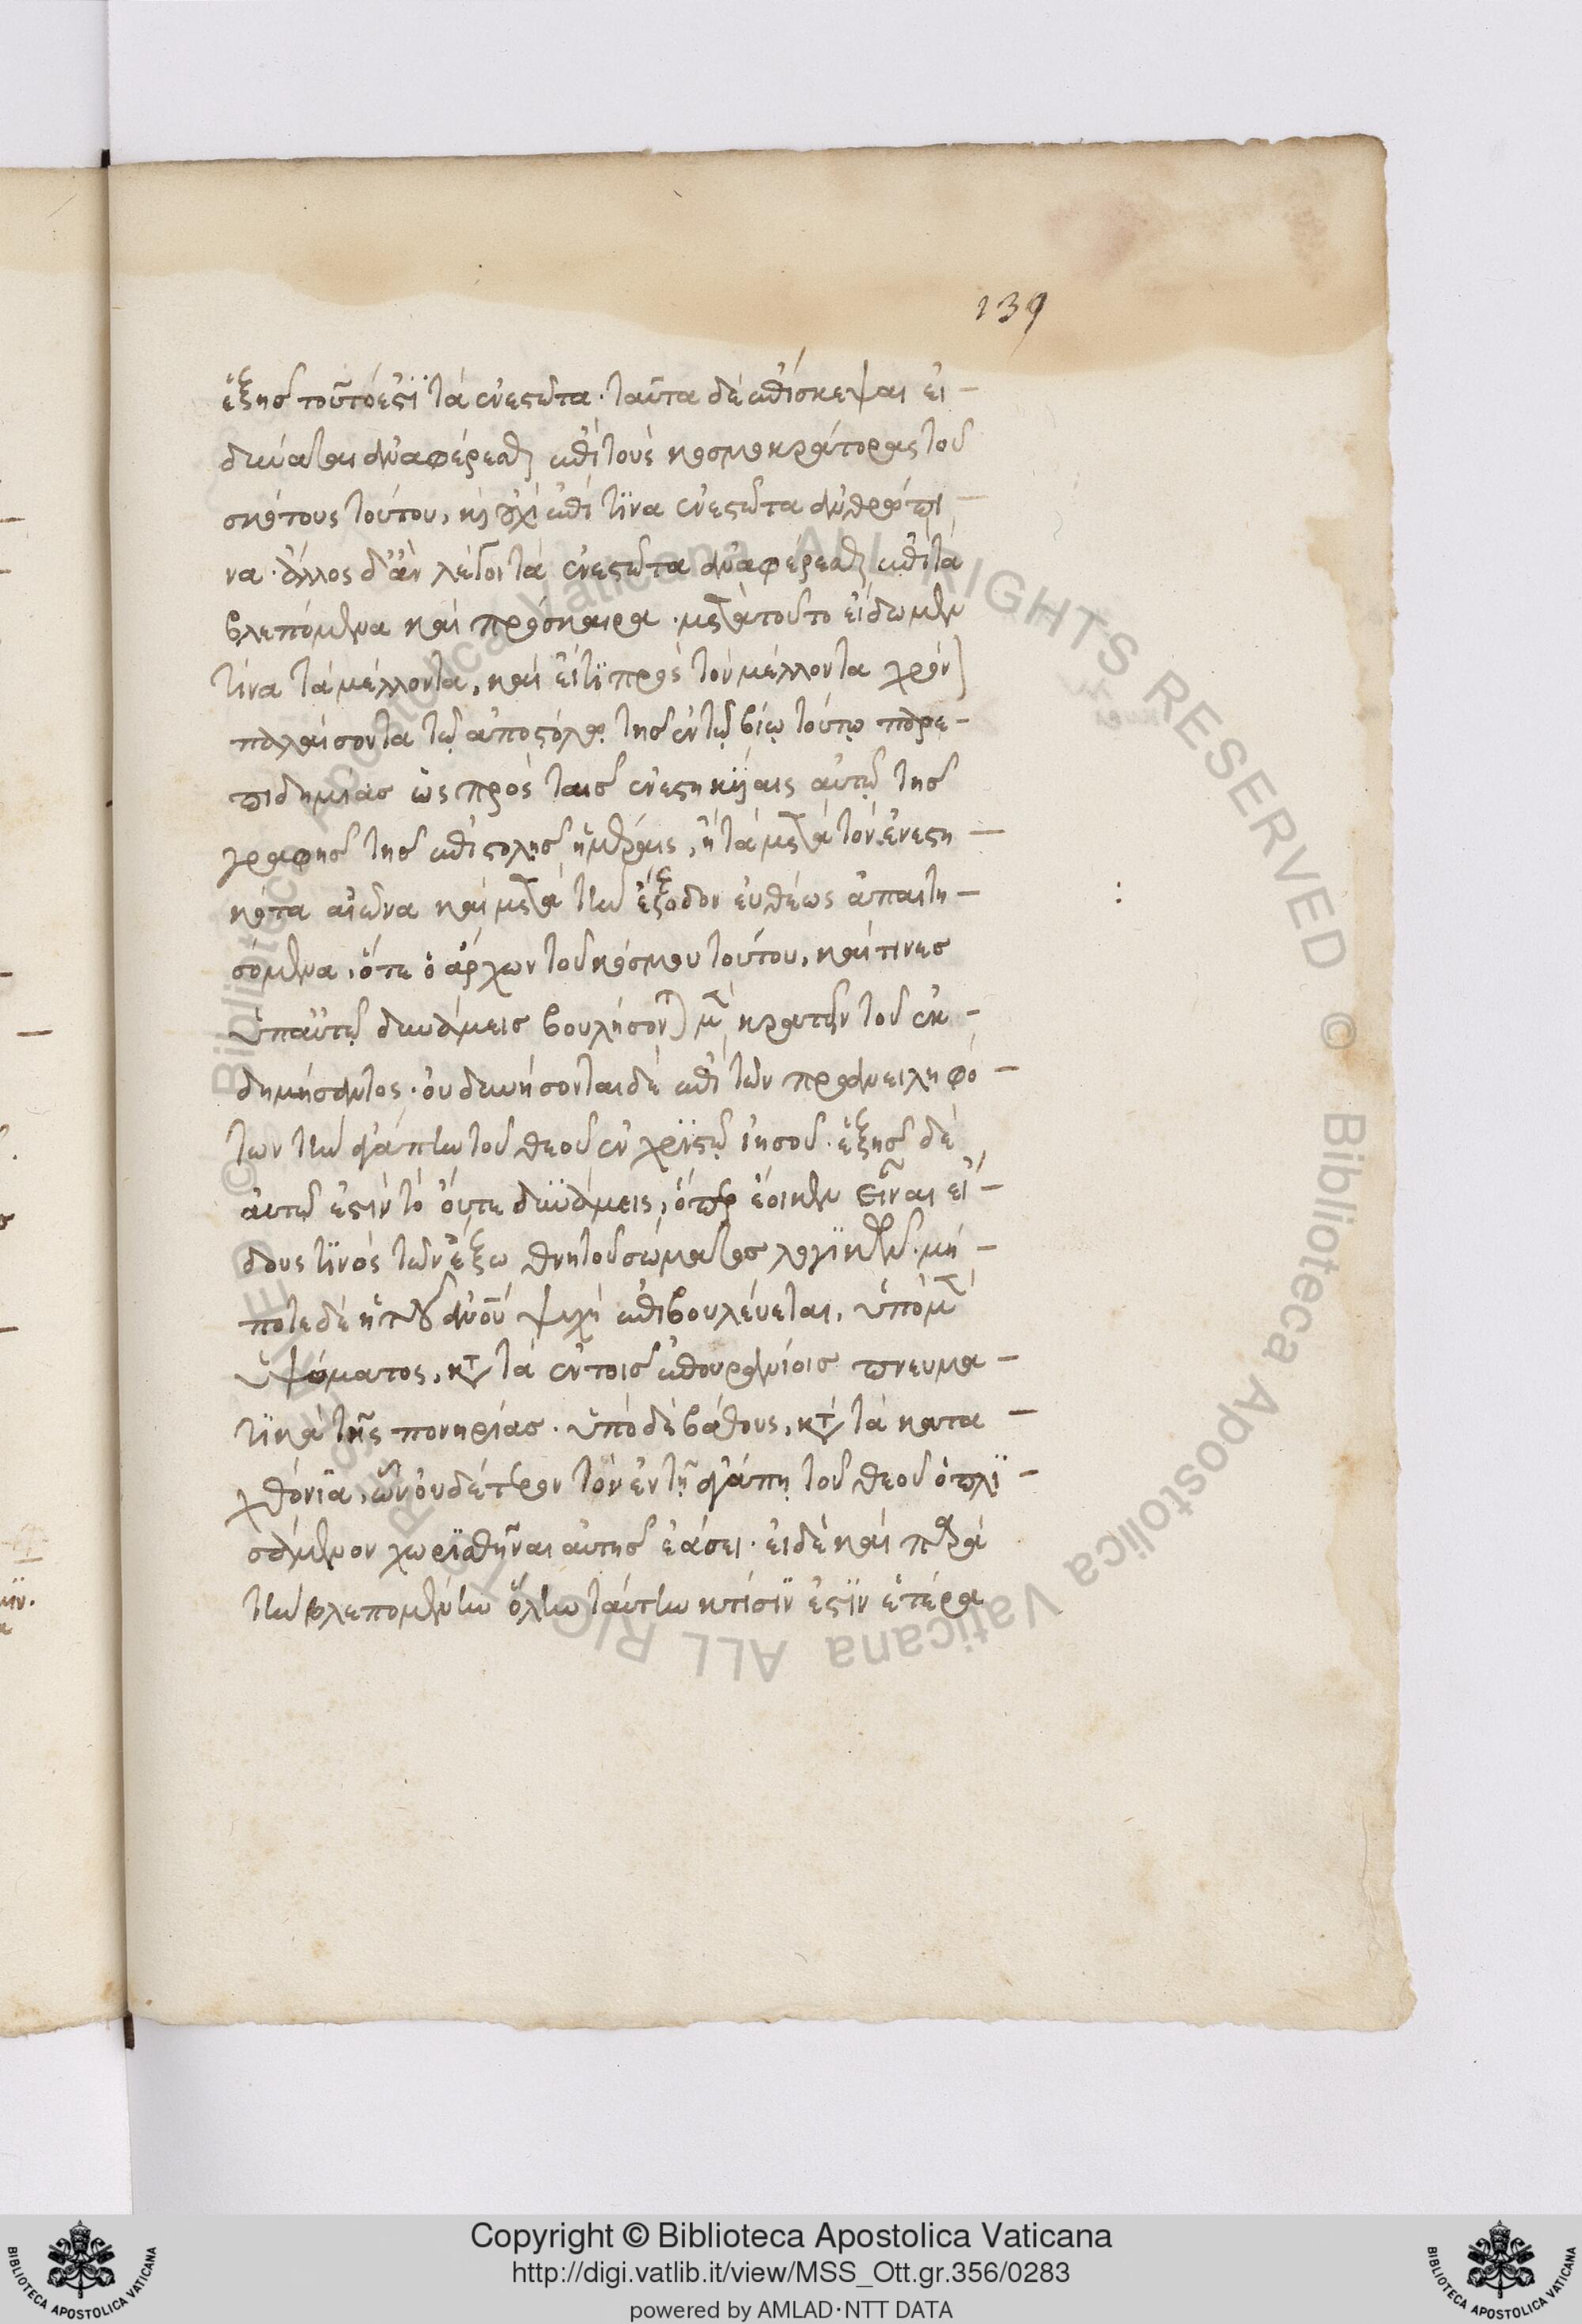 139
ἑξῆς τοῦτό ἐστι τὰ ἐνεστῶτα· ταῦτα δὲ ἐπίσκεψαι εἰ –
δύναται ἀναφέρεσθαι ἐπὶ τοὺς κοσμοκράτορας τοῦ
σκότους τούτου, καὶ οὐχὶ ἐπί τινα ἐνεστῶτα ἀνθρώπι –
να· ἄλλος δ' ἂν λέγοι τὰ ἐνεστῶτα ἀναφέρεσθαι ἐπὶ τὰ
βλεπόμενα καὶ πρόσκαιρα· μετὰ τοῦτο εἴδωμεν
τίνα τὰ μέλλοντα, καὶ εἴ τι πρὸς τὸν μέλλοντα χρόν
παλαίσοντα τῷ ἀποστόλῳ τῆς ἐν τῷ βίῳ τούτῳ παρε –
πιδημίας ὡς πρὸς ταῖς ἐνεστηκυίαις αὐτῷ τῆς
γραφῆς τῆς ἐπιστολῆς ἡμέραις, ἢ τὰ μετὰ τὸν ἐνεστη –
κότα αἰῶνα καὶ μετὰ τὴν ἔξοδον εὐθέως ἀπαντη –
σόμενα, ὅτε ὁ ἄρχων τοῦ κόσμου τούτου, καί τινες
ὑπ' αὐτῷ δυνάμεις βουλήσονται μὲν κρατεῖν τοῦ ἐκ –
δημήσαντος· οὐ δυνήσονται δὲ ἐπὶ τῶν προανειληφό –
των τὴν ἀγάπην τοῦ θεοῦ ἐν χριστῷ ἰησοῦ· ἑξῆς δὲ
αὐτῷ ἐστὶν τὸ οὔτε δυνάμεις, ὅπερ ἔοικεν εἶναι εἴ –
δους τινὸς τῶν ἔξω θνητοῦ σώματος λογικῶν· μή –
ποτε δὲ ἡ τοῦ ἀνοῦ ψυχὴ ἐπιβουλεύεται, ὑπὸ μὲν
ὑψώματος, κατὰ τὰ ἐν τοῖς ἐπουρανίοις πνευμα –
τικὰ τῆς πονηρίας· ὑπὸ δὲ βάθους, κατὰ τὰ κατα –
χθόνια, ὧν οὐδέτερον τὸν ἐν τῇ ἀγάπῃ τοῦ θεοῦ ὁπλι –
σάμενον χωρισθῆναι αὐτῆς ἐάσει· εἰ δὲ καὶ παρὰ
τὴν βλεπομένην ὅλην ταύτην κτίσιν ἐστὶν ἑτέρα
Copyright © Biblioteca Apostolica Vaticana
http://digi.vatlib.it/view/MSS_Ott.gr.356/0283
powered by AMLAD·NTT DATA